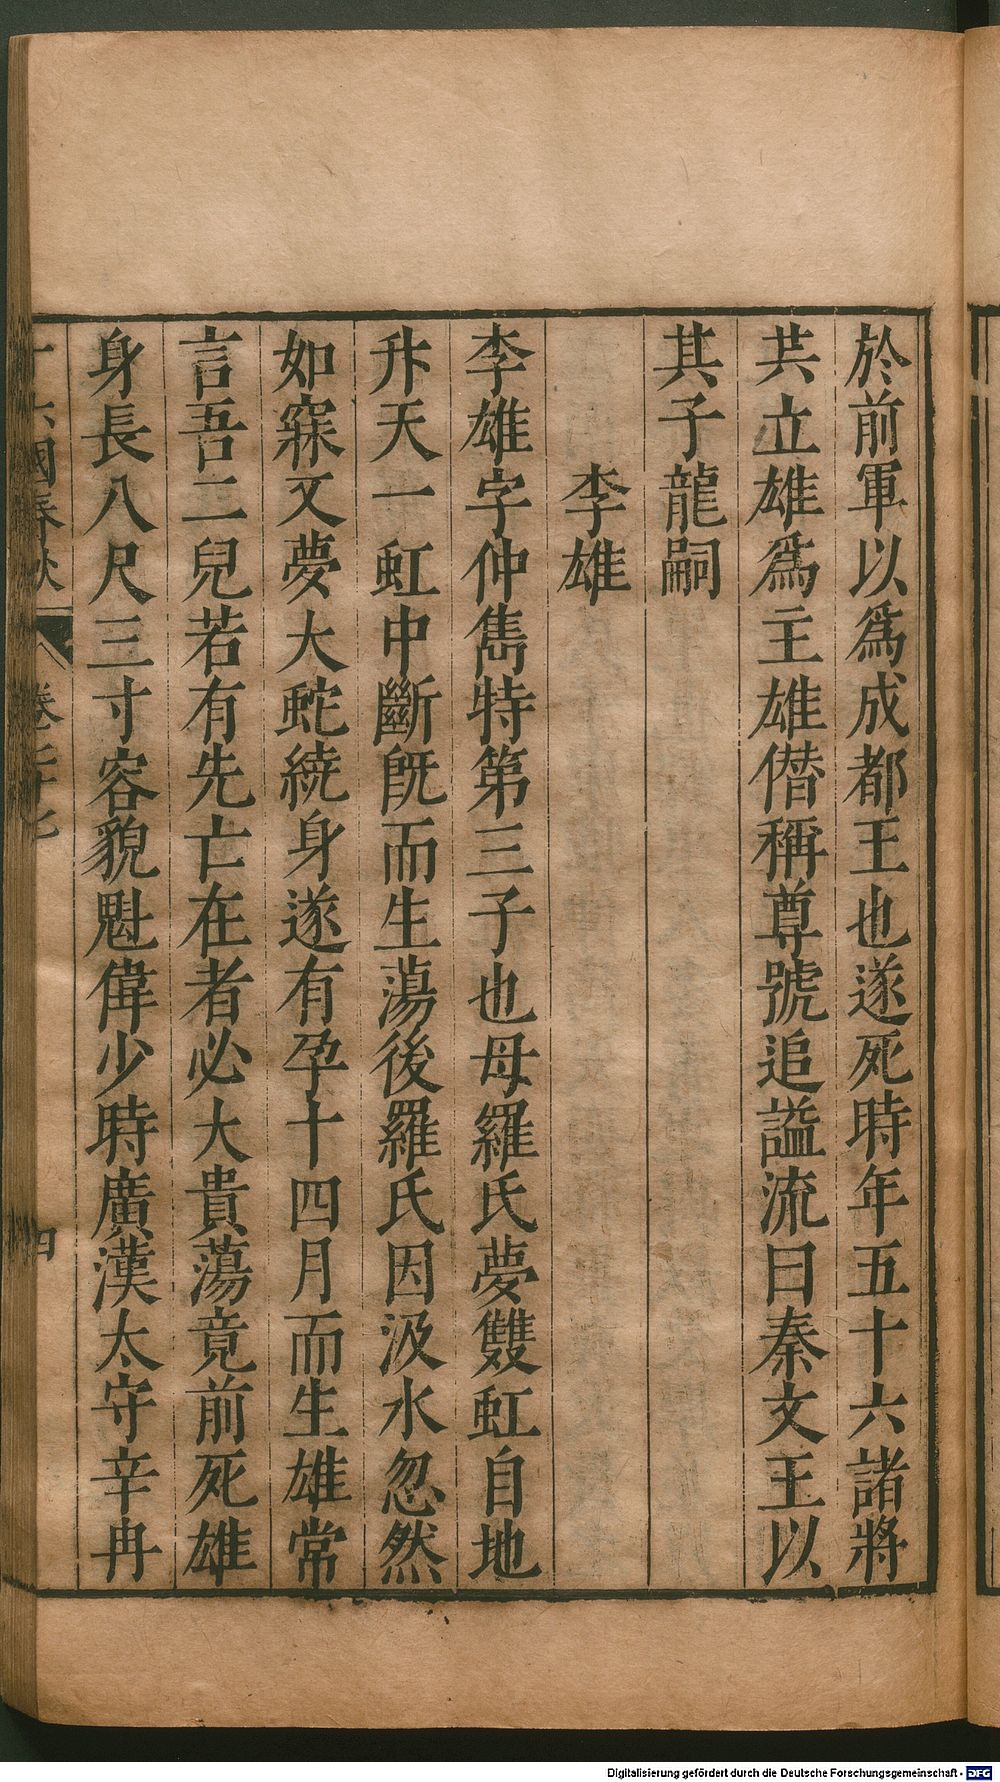 於前軍以爲成都王也遂死時年五十六諸將
共立雄爲主雄僣稱尊號追謚流曰秦文王以
其子龍嗣
李雄
李雄字仲雋特第三子也母羅氏夢雙虹自地
升天一虹中斷旣而生蕩後羅氏因汲水忽然
如寐又夢大蛇繞身遂有孕十四月而生雄常
言吾二兒若有先亡在者必大貴蕩竟前死雄
身長八尺三寸容貌魁偉少時廣漢太守辛冉
十六國春秋 卷七十七 四
Digitalisierung gefördert durch die Deutsche Forschungsgemeinschaft - DFG